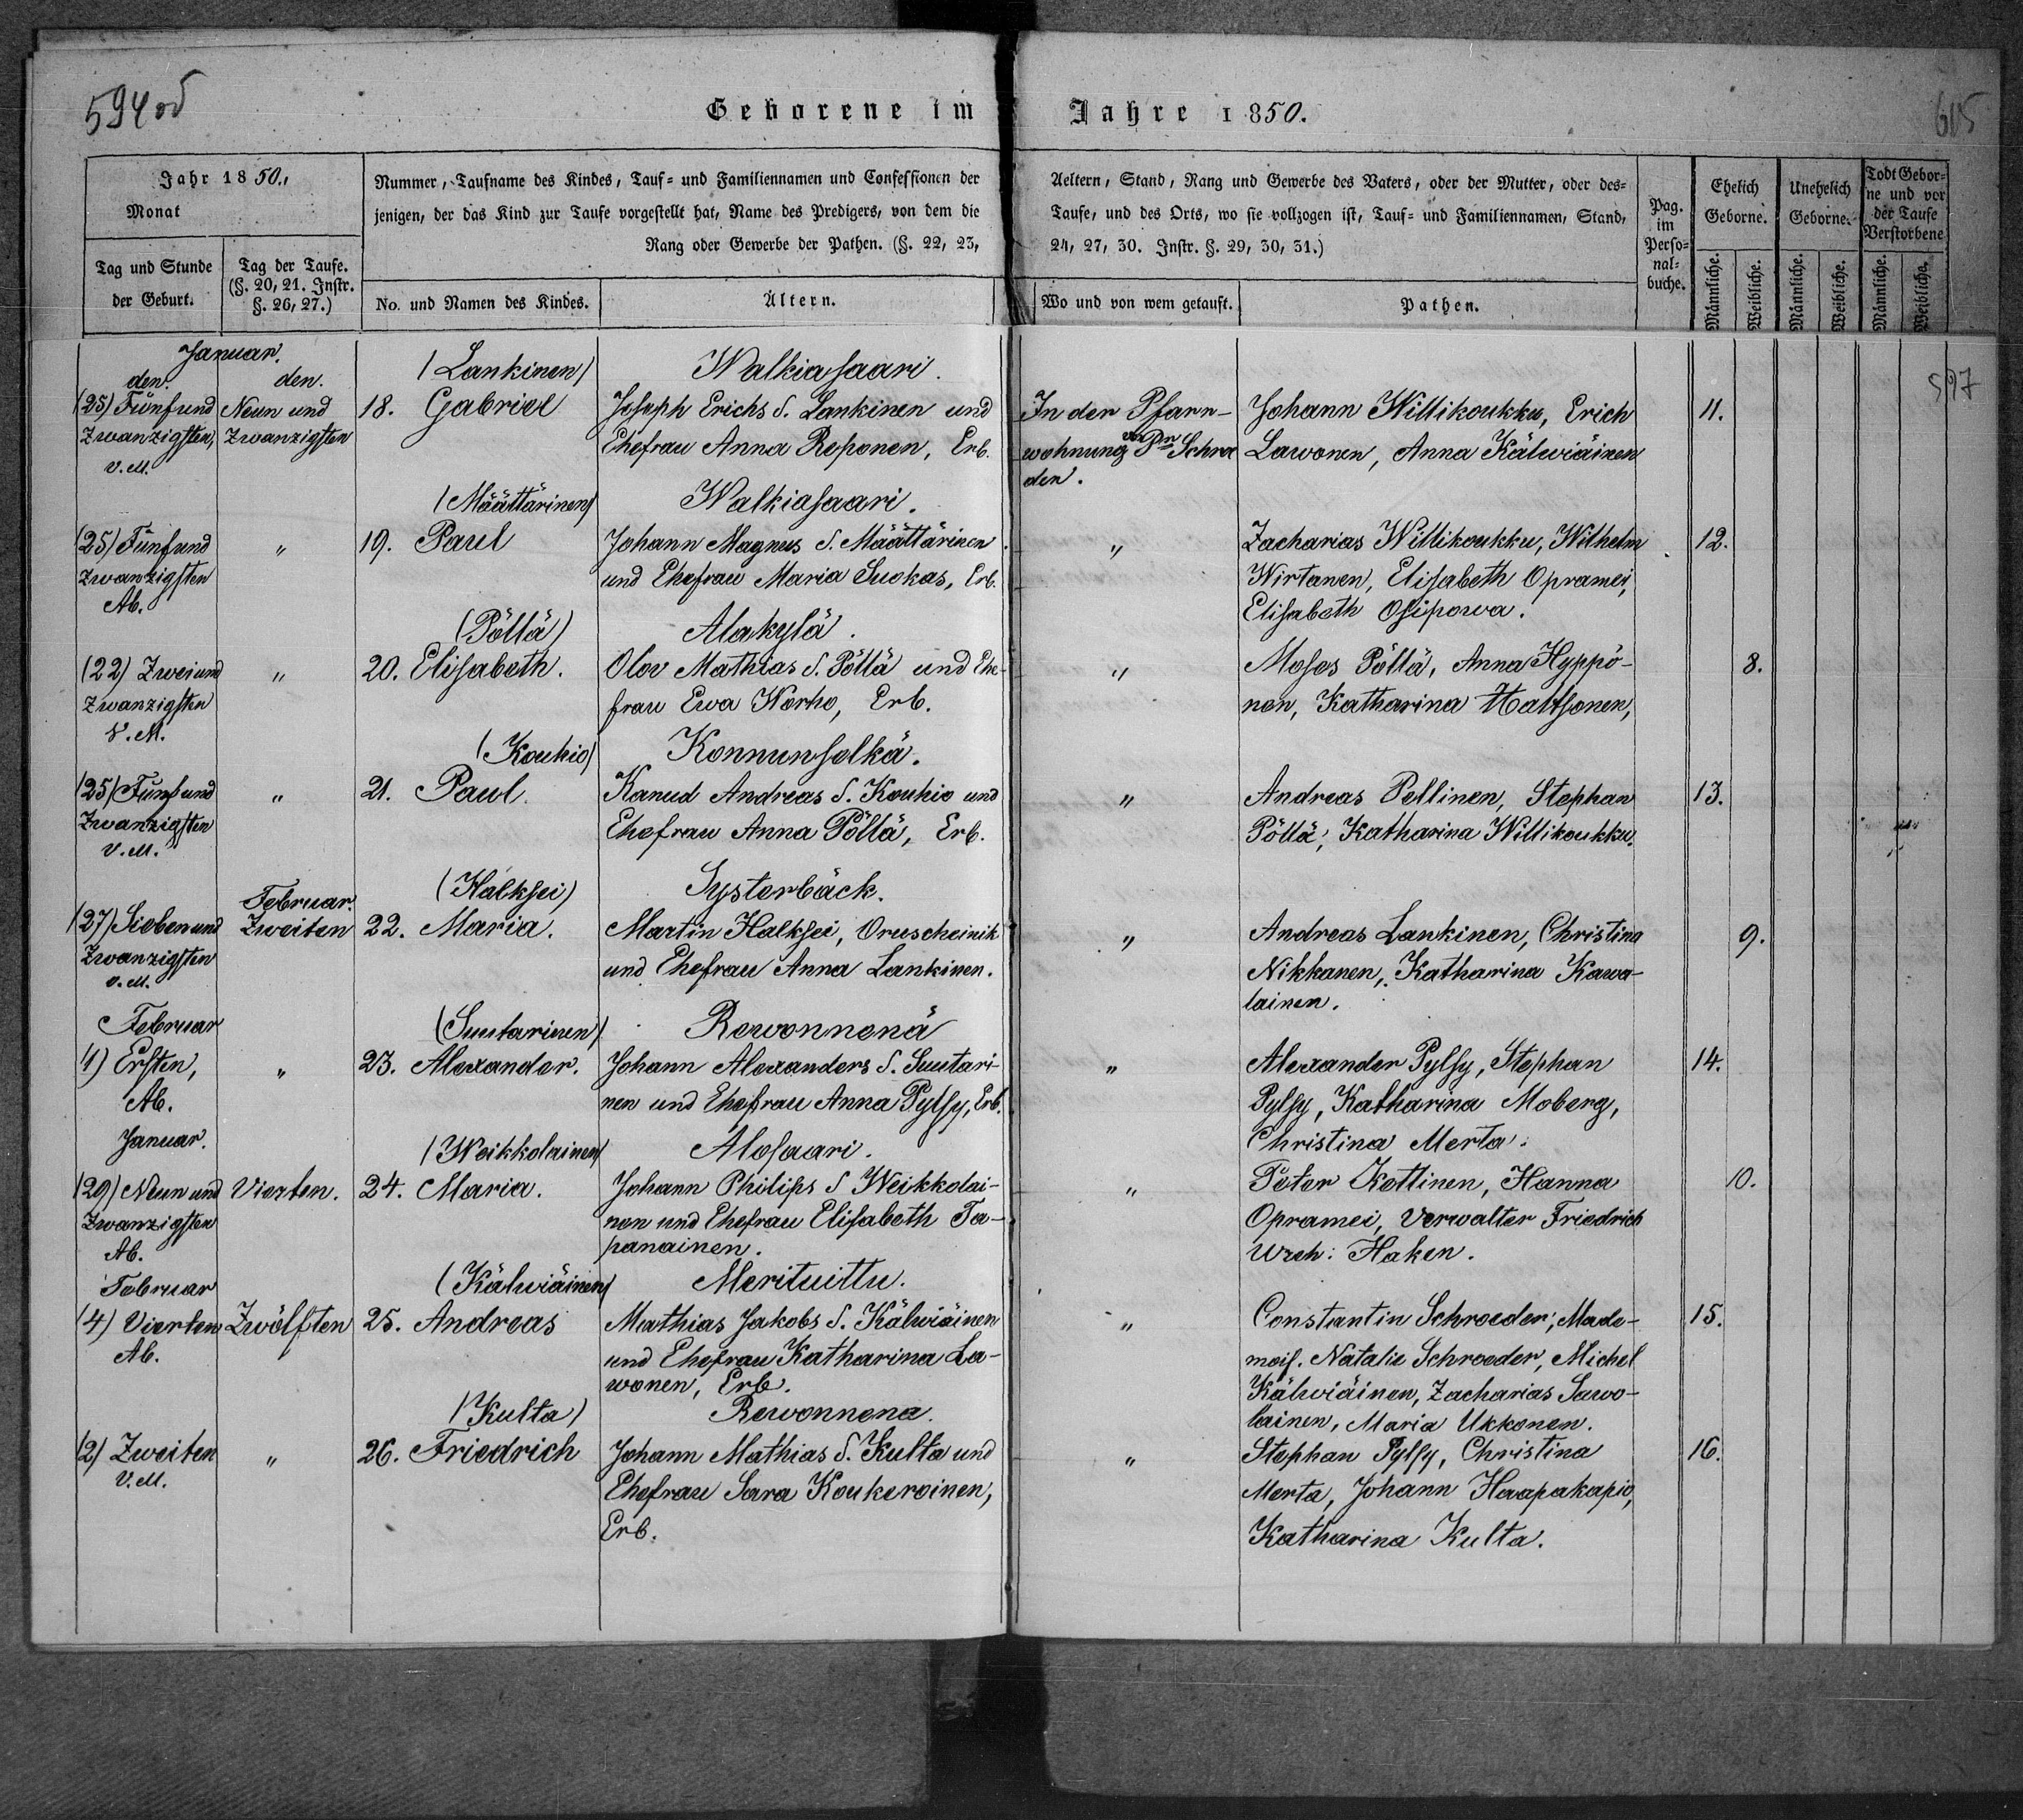 594 od
Geborene im Jahre 1850.
615
Jahr 1850.,
Monat
Tag und Stunde
der Geburt.
Tag der Taufe.
(§. 20, 21. Instr.
§. 26, 27.)
Nummer, Taufname des Kindes, Tauf= und Familiennamen und Confessionen der
jenigen, der das Kind zur Taufe vorgestellt hat, Name des Predigers, von dem die
Rang oder Gewerbe der Pathen. (§. 22, 23,
No. und Namen des Kindes.
Ältern.
Aeltern, Stand, Rang und Gewerbe des Vaters, oder der Mutter, oder des=
Taufe, und des Orts, wo sie vollzogen ist, Tauf= und Familiennamen, Stand,
24, 27, 30. Instr. §. 29, 30, 31.)
Wo und von wem getauft.
Pathen.
Pag.
im
Perso=
nal=
buche.
Ehelich
Geborne.
Unehelich
Geborne.
Todt Gebor=
ne und vor
der Taufe
Verstorbene
Männliche.
Weibliche.
Männliche.
Weibliche.
Männliche.
Weibliche.
597
Januar.
den.
den.
(Lankinen)
Walkiasaari.
(25) Fünfund
Zwanzigsten,
V. M.
Neun und
Zwanzigsten
18. Gabriel
Joseph Erichs S. Lankinen und
Ehefrau Anna Reponen, Erb.
In der Pfarr-
wohnung von Pn Schroe
den.
Johann Willikoukku, Erich
Lawonen, Anna Kälwiäinen
11.
(Määttärinen)
Walkiasaari.
(25) Fünfund
zwanzigsten
Ab.
"
19. Paul
Johann Magnus S. Määttärinen
und Ehefrau Maria Suokas, Erb.
"
Zacharias Willikoukku, Wilhelm
Wirtanen, Elisabeth Opramei,
Elisabeth Osipowa.
12.
(Pöllä)
Alakylä.
(22) Zweiund
zwanzigsten
V. M.
"
20. Elisabeth.
Olov Mathias S. Pöllä und Ehe-
frau Ewa Worho, Erb.
"
Moses Pöllä, Anna Hyppö-
nen, Katharina Hattsonen,
8.
(Koukio)
Konnunselkä.
(25) Fünfund
Zwanzigsten
V. M.
"
21. Paul.
Kanud Andreas S. Koukio und
Ehefrau Anna Pöllä, Erb.
"
Andreas Pellinen, Stephan
Pöllä, Katharina Willikoukku.
13.
(Halksei)
Systerbäck.
(27) Siebenund
Zwanzigsten
V. M.
Februar.
Zweiten
22. Maria.
Martin Halksei, Oruscheinik
und Ehefrau Anna Lankinen.
"
Andreas Lankinen, Christina
Nikkanen, Katharina Kawa-
lainen.
9.
Februar
(Suutarinen)
Rewonnenä
1) Ersten,
Ab.
"
23. Alexander.
Johann Alexanders S. Suutari-
nen und Ehefrau Anna Pylsy, Erb.
"
Alexander Pylsy, Stephan
Pylsy, Katharina Moberg,
Christina Merta.
14.
Januar.
(Weikkolainen)
Alosaari.
(29) Neun und
Zwanzigsten
Ab.
Vierten.
24. Maria.
Johann Philips S Weikkolai-
nen und Ehefrau Elisabeth Ta-
panainen.
"
Peter Kottinen, Hanna
Opramei, Verwalter Friedrich
Haken.
10.
Februar
(Kälwiäinen)
Merituittu.
(4) Vierten
Ab.
Zwölften
25. Andreas
Mathias Jakobs S. Kälwiäinen
und Ehefrau Katharina La-
wonen, Erb.
"
Constantin Schroeder, Made-
mois. Natalie Schroeder, Michel
Kälwiäinen, Zacharias Sawo-
lainen, Maria Ukkonen.
15.
(Kulta)
Rewonnena.
(2) Zweiten
V. M.
"
26. Friedrich
Johann Mathias S. Kulta und
Ehefrau Sara Koukeroinen,
Erb.
"
Stephan Pylsy, Christina
Merta, Johann Haapakapio,
Katharina Kulta.
16.